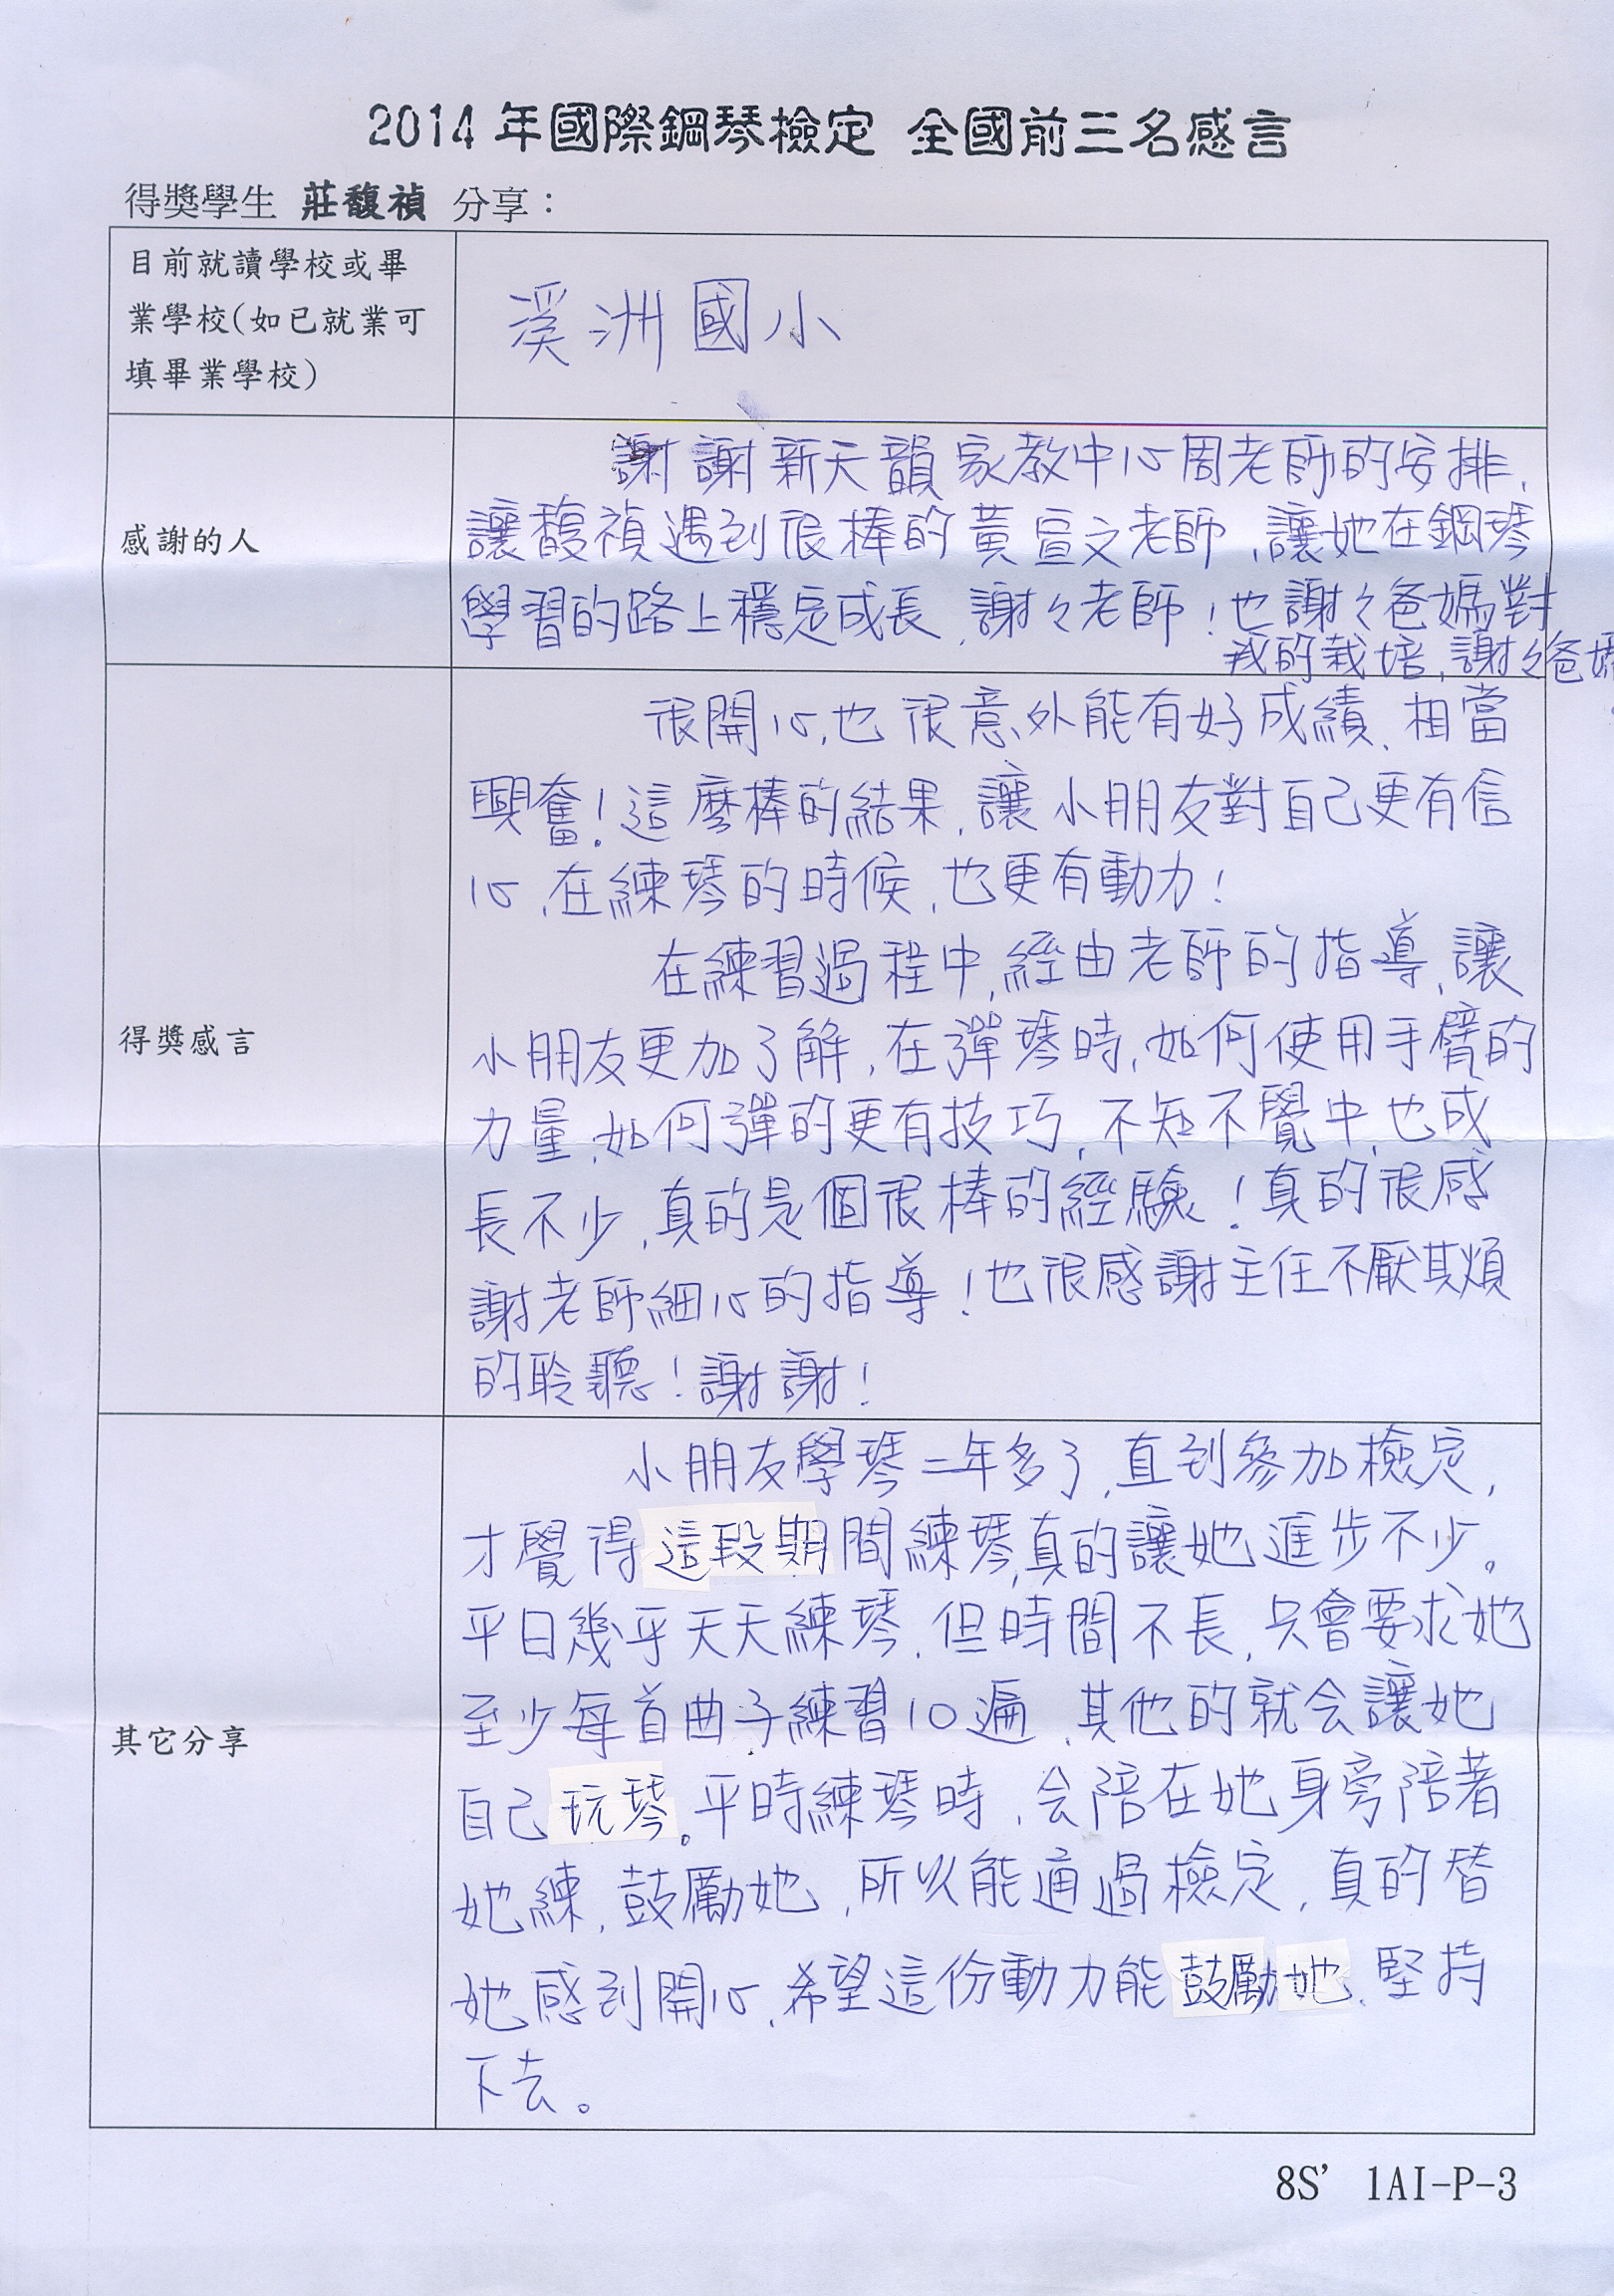 2014 年國際鋼琴檢定 全國前三名感言
得獎學生 莊馥禎 分享：
目前就讀學校或畢
業學校(如已就業可
填畢業學校)
溪洲國小
感謝的人
謝謝新天韻家教中心周老師的安排,
讓馥禎遇到很棒的黃宣文老師,讓她在鋼琴
學習的路上穩定成長,謝々老師!也謝々爸媽對
我的栽培,謝々爸媽
得獎感言
很開心,也很意外能有好成績,相當
興奮!這麼棒的結果,讓小朋友對自己更有信
心,在練琴的時候,也更有動力!
在練習過程中,經由老師的指導,讓
小朋友更加了解,在彈琴時,如何使用手臂的
力量,如何彈的更有技巧,不知不覺中,也成
長不少,真的是個很棒的經驗!真的很感
謝老師細心的指導!也很感謝主任不厭其煩
的聆聽!謝謝!
其它分享
小朋友學琴二年多了,直到參加檢定,
才覺得這段期間練琴,真的讓她進步不少。
平日幾乎天天練琴,但時間不長,只會要求她
至少每首曲子練習10遍,其他的就会讓她
自己玩琴。平時練琴時,会陪在她身旁陪著
她練,鼓勵她,所以能通過檢定,真的替
她感到開心,希望這份動力能鼓勵她,堅持
下去。
8S’ 1AI-P-3